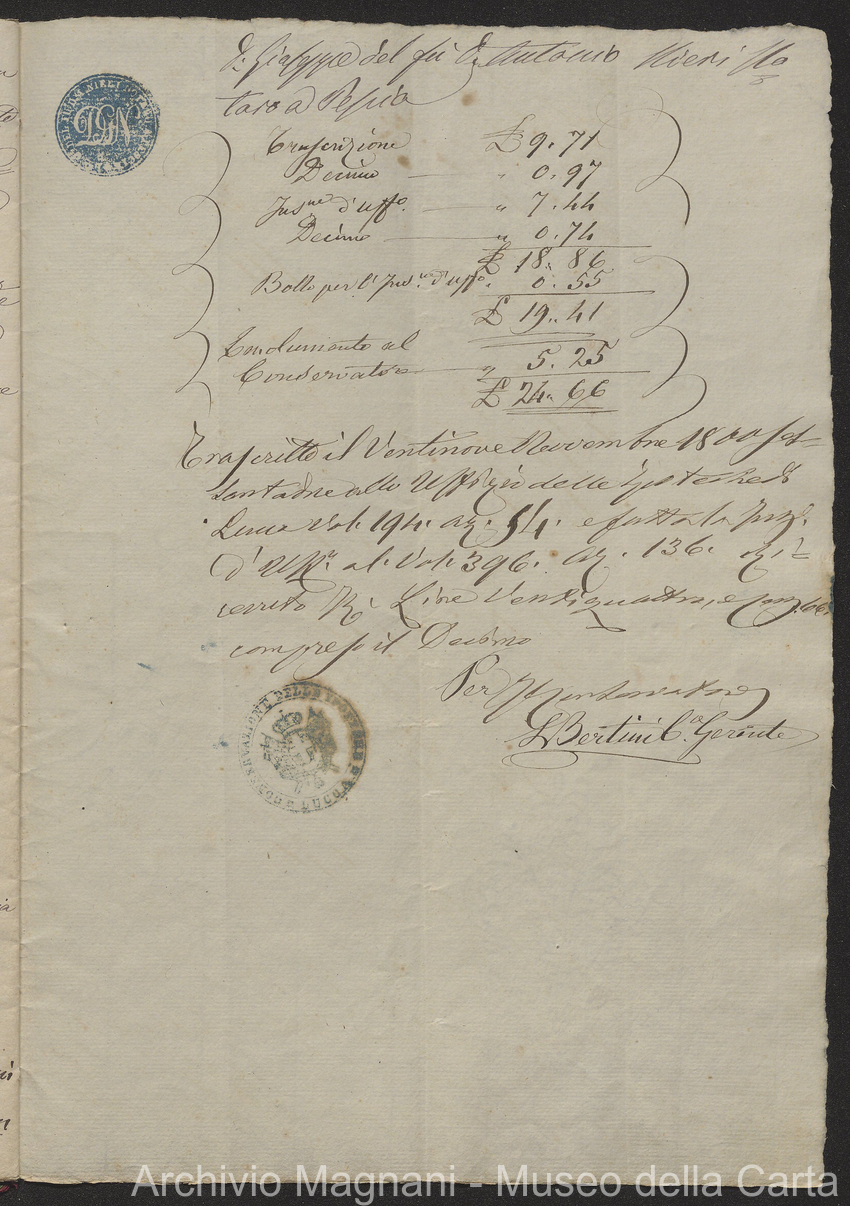 Dr. Giuseppe del fu Dr. Antonio Nieri No
taro a Pescia
Trascrizione £ 9. 71
Decimo — " 0. 97
Ins.ne d'uff.o — " 7. 44
Decimo — " 0. 74
£ 18. 86
Bollo per l'Ins.ne d'uff.o 0. 55
£ 19. 41
Emolumento al
Conservatore — " 5. 25
£ 24. 66
Trascritto il Ventinove Novembre 18
santadue allo Uffizio delle Ipoteche di
Lucca Vol. 194. az. 54. e fatta la
d'Uff.o al Vol. 396. az. 136.
Lire Ventiquattro, e 66
compreso il Decimo
Per Il Conservatore
Bertini C.o Gerente
CONSERVAZIONE DELLE IPOTECHE LUCCA
Archivio Magnani - Museo della Carta